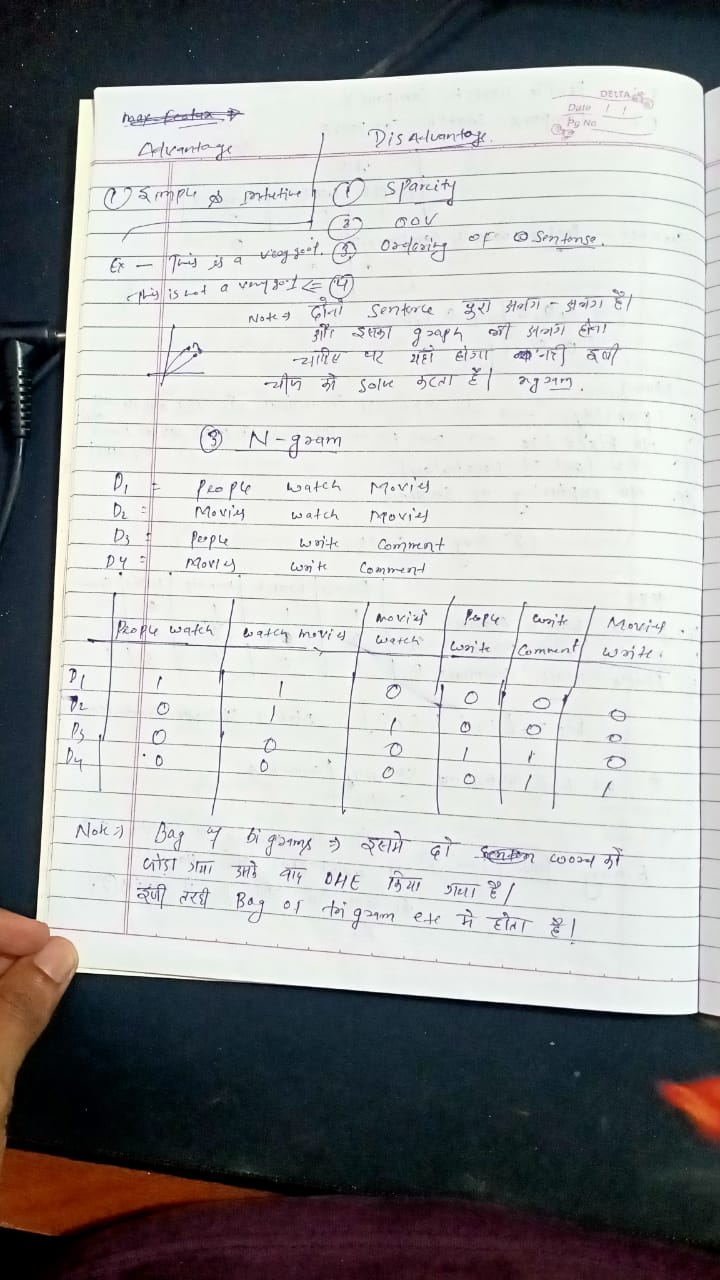 DELTA
Date / /
Pg No
Advantage
DisAdvantage.
① Simple &
① Sparcity
②
③ Ordering of Sentense.
Ex - This is a very good.
This is not a very good ⇐ ④
Note ⇒ दोनो Sentence पुरा अलग - अलग है।
और इसका graph भी अलग होना
चाहिए पर यहाँ होगा नही इसी
चीज को solve करता है। ngram.
③ N-gram
D1 = People watch Movies
D2 = Movies watch Movies
D3 = People write Comment
D4 = Movies write Comment
People watch | watch movies | movies watch | People write | write comment | Movies write.
D1 1 1 0 0 0 0
D2 0 1 1 0 0 0
D3 0 0 0 1 1 0
D4 0 0 0 0 1 1
Note ⇒ Bag of bi grams ⇒ इसमे दो word को
जोडा गया उसके बाद OHE किया गया है।
इसी तरही Bag of tri gram etc मे होता है।